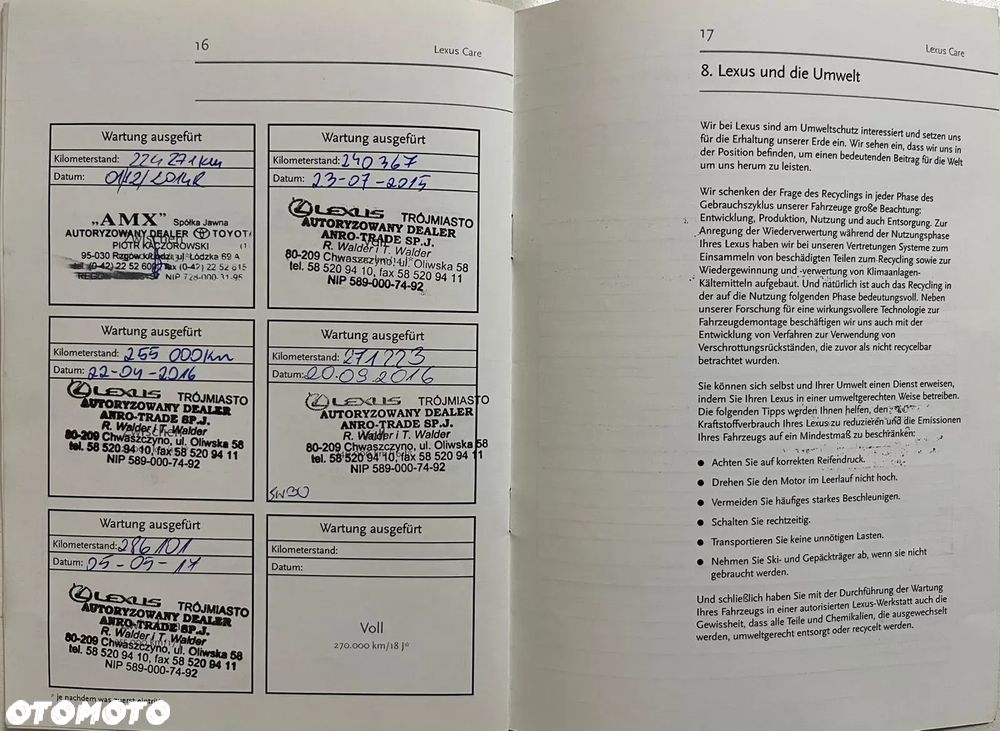 16
Lexus Care
Wartung ausgefürt
Kilometerstand: 224 271 km
Datum: 01/12/2014R
„AMX” Spółka Jawna
AUTORYZOWANY DEALER TOYOTA
PIOTR KACZOROWSKI
95-030 Rzgów k/Łodzi, ul. Łódzka 69 A
tel. (0-42) 22 52 60 fax (0-42) 22 52 615
NIP 728-000-31-95
Wartung ausgefürt
Kilometerstand: 240 367
Datum: 23-07-2015
LEXUS TRÓJMIASTO
AUTORYZOWANY DEALER
ANRO-TRADE SP.J.
R. Walder i T. Walder
80-209 Chwaszczyno, ul. Oliwska 58
tel. 58 520 94 10, fax 58 520 94 11
NIP 589-000-74-92
Wartung ausgefürt
Kilometerstand: 255 000km
Datum: 22-04-2016
LEXUS TRÓJMIASTO
AUTORYZOWANY DEALER
ANRO-TRADE SP.J.
R. Walder i T. Walder
80-209 Chwaszczyno, ul. Oliwska 58
tel. 58 520 94 10, fax 58 520 94 11
NIP 589-000-74-92
Wartung ausgefürt
Kilometerstand: 271223
Datum: 20.09.2016
LEXUS TRÓJMIASTO
AUTORYZOWANY DEALER
ANRO-TRADE SP.J.
R. Walder i T. Walder
80-209 Chwaszczyno, ul. Oliwska 58
tel. 58 520 94 10, fax 58 520 94 11
NIP 589-000-74-92
5W30
Wartung ausgefürt
Kilometerstand: 286101
Datum: 25-05-17
LEXUS TRÓJMIASTO
AUTORYZOWANY DEALER
ANRO-TRADE SP.J.
R. Walder i T. Walder
80-209 Chwaszczyno, ul. Oliwska 58
tel. 58 520 94 10, fax 58 520 94 11
NIP 589-000-74-92
Wartung ausgefürt
Kilometerstand:
Datum:
Voll
270.000 km/18 J*
* Je nachdem was zuerst eintritt
OTOMOTO
17
Lexus Care
8. Lexus und die Umwelt
Wir bei Lexus sind am Umweltschutz interessiert und setzen uns
für die Erhaltung unserer Erde ein. Wir sehen ein, dass wir uns in
der Position befinden, um einen bedeutenden Beitrag für die Welt
um uns herum zu leisten.
Wir schenken der Frage des Recyclings in jeder Phase des
Gebrauchszyklus unserer Fahrzeuge große Beachtung:
Entwicklung, Produktion, Nutzung und auch Entsorgung. Zur
Anregung der Wiederverwertung während der Nutzungsphase
Ihres Lexus haben wir bei unseren Vertretungen Systeme zum
Einsammeln von beschädigten Teilen zum Recycling sowie zur
Wiedergewinnung und -verwertung von Klimaanlagen-
Kältemitteln aufgebaut. Und natürlich ist auch das Recycling in
der auf die Nutzung folgenden Phase bedeutungsvoll. Neben
unserer Forschung für eine wirkungsvollere Technologie zur
Fahrzeugdemontage beschäftigen wir uns auch mit der
Entwicklung von Verfahren zur Verwendung von
Verschrottungsrückständen, die zuvor als nicht recycelbar
betrachtet wurden.
Sie können sich selbst und Ihrer Umwelt einen Dienst erweisen,
indem Sie Ihren Lexus in einer umweltgerechten Weise betreiben.
Die folgenden Tipps werden Ihnen helfen, den
Kraftstoffverbrauch Ihres Lexus zu reduzieren und die Emissionen
Ihres Fahrzeugs auf ein Mindestmaß zu beschränken:
● Achten Sie auf korrekten Reifendruck.
● Drehen Sie den Motor im Leerlauf nicht hoch.
● Vermeiden Sie häufiges starkes Beschleunigen.
● Schalten Sie rechtzeitig.
● Transportieren Sie keine unnötigen Lasten.
● Nehmen Sie Ski- und Gepäckträger ab, wenn sie nicht
gebraucht werden.
Und schließlich haben Sie mit der Durchführung der Wartung
Ihres Fahrzeugs in einer autorisierten Lexus-Werkstatt auch die
Gewissheit, dass alle Teile und Chemikalien, die ausgewechselt
werden, umweltgerecht entsorgt oder recycelt werden.